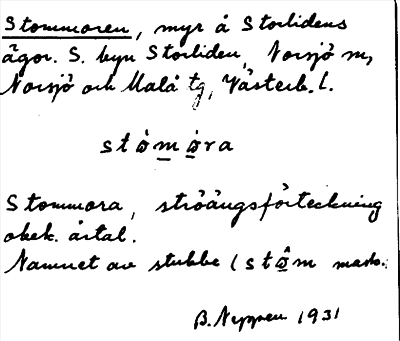 Stommoren, myr å Storlidens
ägor. S. byn Storliden, Norsjö sn,
Norsjö och Malå tg, Västerb. l.
stømøra
Stommora, ströängsförteckning
obek. årtal.
Namnet av stubbe (støm mask.
B. 1931